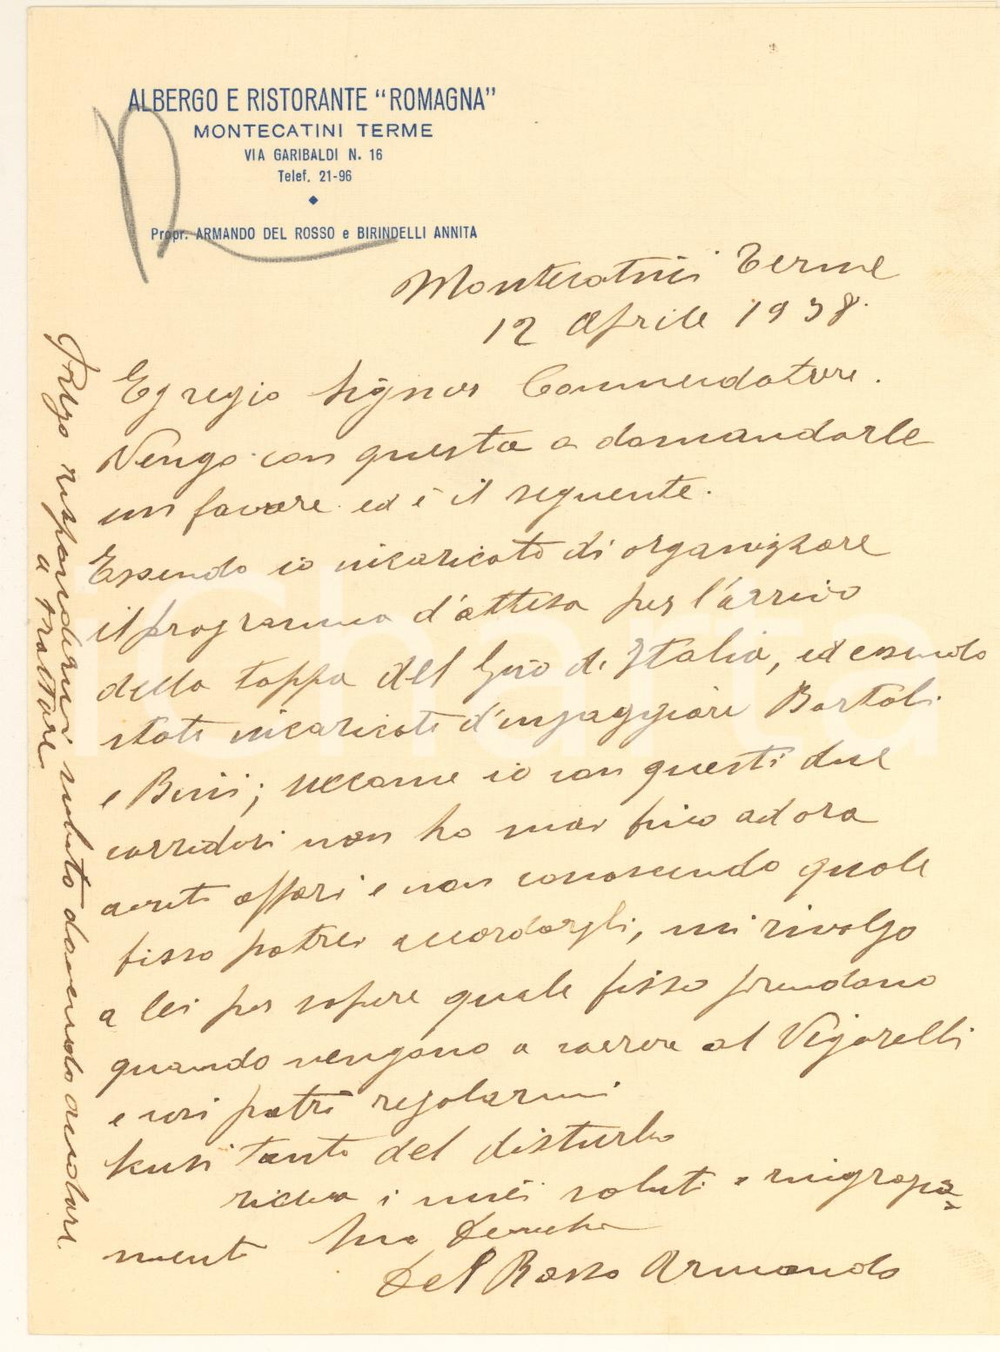 ALBERGO E RISTORANTE "ROMAGNA"
MONTECATINI TERME
VIA GARIBALDI N. 16
Telef. 21-96
Propr. ARMANDO DEL ROSSO e BIRINDELLI ANNITA
Montecatini Terme
12 Aprile 1938.
Egregio Signor Commendatore.
Vengo con questa a domandarle
un favore ed è il seguente.
Essendo io incaricato di organizzare
il programma d'attesa per l'arrivo
della tappa del Giro di Italia, ed essendo
stato incaricato d'ingaggiare Bartoli
e Bini; siccome io con questi due
corridori non ho mai fino ad ora
avuti affari e non conoscendo quale
fisso potrei accordargli, mi rivolgo
a lei per sapere quale fisso prendano
quando vengono a correre al Vigorelli
e così potrò regolarmi
scusi tanto del disturbo
riceva i miei saluti e ringrazia=
menti Suo
Del Rosso Armando
Prego rispondermi subito dovendo andare
a trattare
iCharta